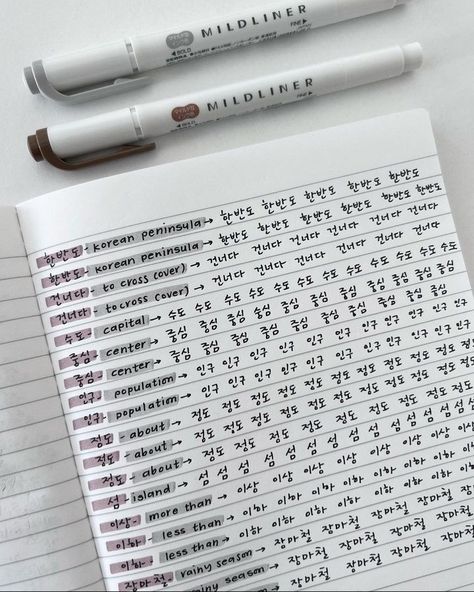 MILDLINER
BOLD
FINE
MILDLINER
BOLD
FINE
한반도 - korean peninsula → 한반도 한반도 한반도 한반도 한반도
한반도 - korean peninsula → 한반도 한반도 한반도 한반도 한반도 한반도
건너다 - to cross (over) → 건너다 건너다 건너다 건너다 건너다
건너다 - to cross (over) → 건너다 건너다 건너다 건너다 건너다
수도 - capital → 수도 수도 수도 수도 수도 수도 수도 수도 수도
중심 - center → 중심 중심 중심 중심 중심 중심 중심 중심
중심 - center → 중심 중심 중심 중심 중심 중심 중심 중심
인구 - population → 인구 인구 인구 인구 인구 인구 인구 인구
인구 - population → 인구 인구 인구 인구 인구 인구 인구 인구
정도 - about → 정도 정도 정도 정도 정도 정도 정도 정도 정도
정도 - about → 정도 정도 정도 정도 정도 정도 정도 정도 정도
정도 - about → 정도 정도 정도 정도 정도 정도 정도 정도
섬 - island → 섬 섬 섬 섬 섬 섬 섬 섬 섬 섬 섬
이상 - more than → 이상 이상 이상 이상 이상 이상 이상
이하 - less than → 이하 이하 이하 이하 이하 이하 이하 이하
이하 - less than → 이하 이하 이하 이하 이하 이하 이하
장마철 - rainy season → 장마철 장마철 장마철 장마철
rainy season → 장마철 장마철 장마철 장마철